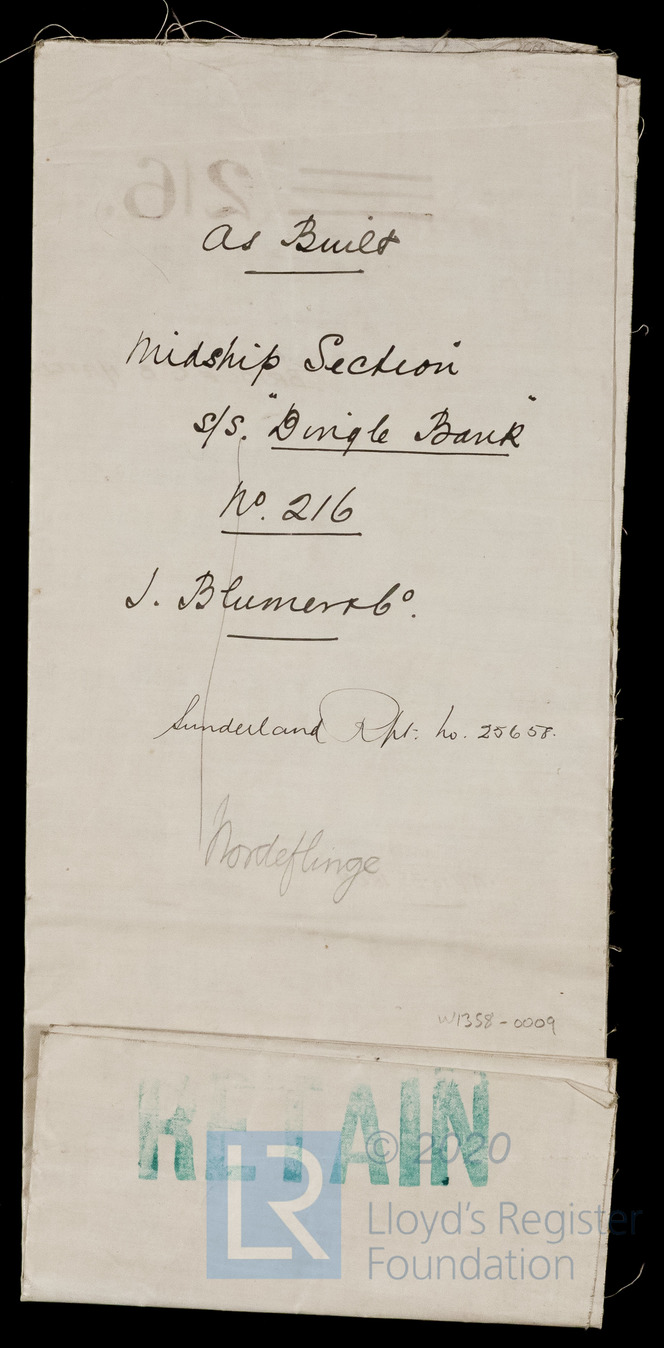 216.
As Built
Midship Section
s/s. "Dingle Bank"
No. 216
J. Blumer & Co.
Sunderland Rpt: No. 25658.
Nordeflinge
W1358-0009
RETAIN
LR
© 2020
Lloyd's Register
Foundation